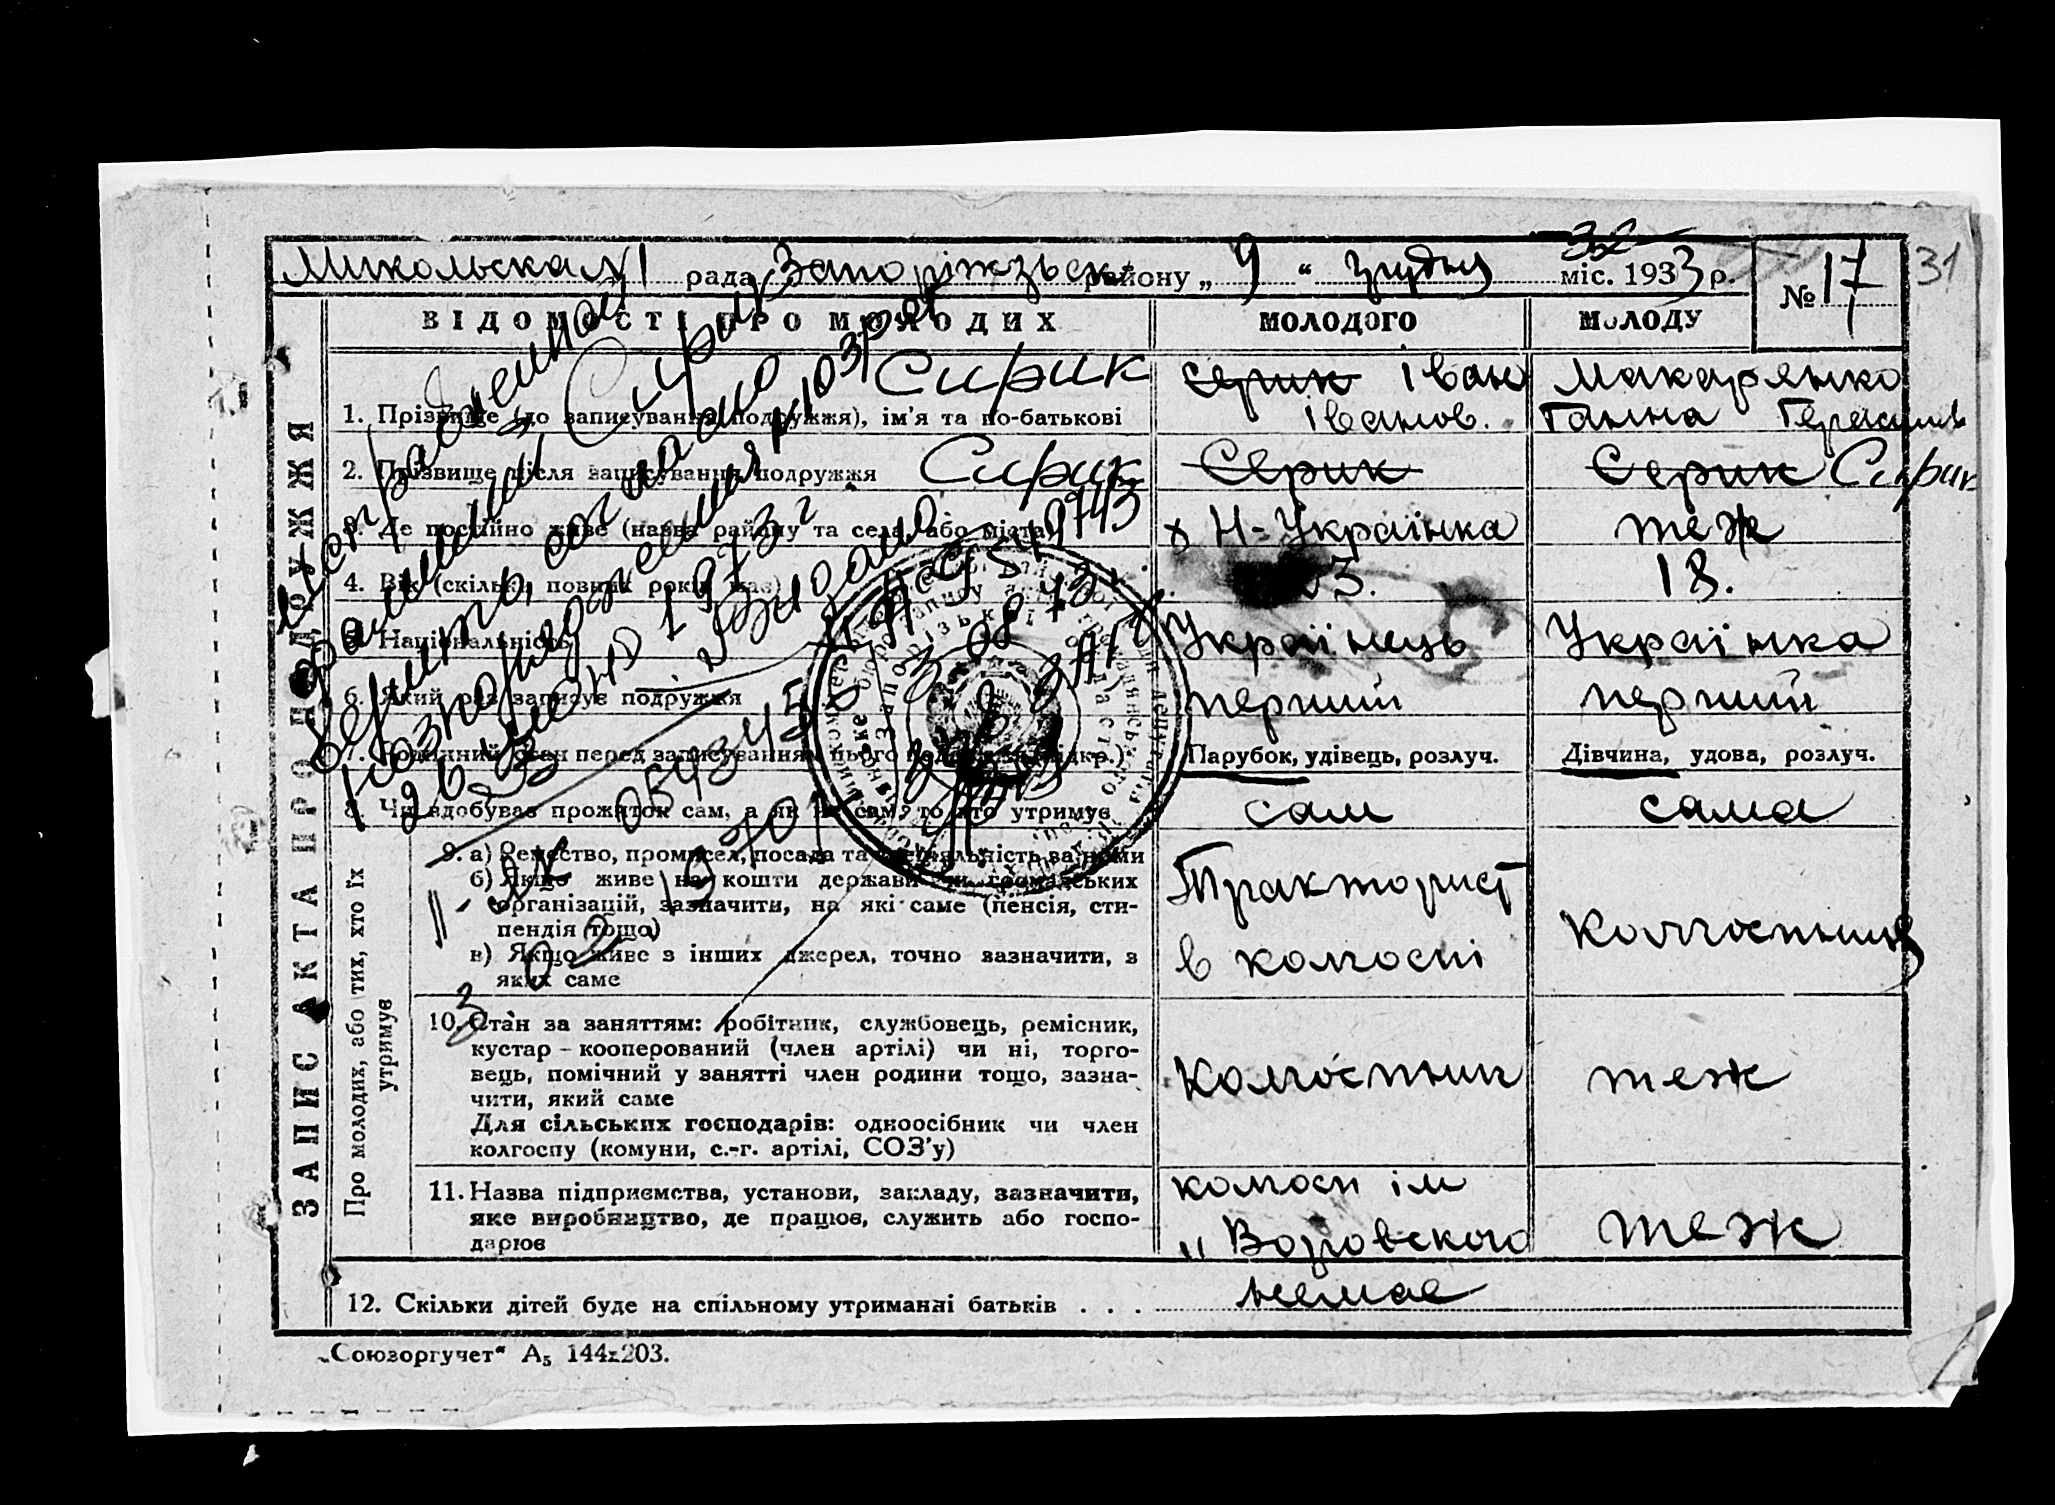 Микольська рада Запоріжзьск району „ 9 “ грудня 32 міс. 1933 р.
№ 17
31
ВІДОМОСТІ ПРО МОЛОДИХ
МОЛОДОГО
МОЛОДУ
ЗАПИС АКТА ПРО ПОДРУЖЖЯ
1. Прізвище (до записування подружжя), ім'я та по-батькові
Сирик
Серик Іван
Іванов.
Макаренко
Ганна Герасимів
2. Прізвище після записування подружжя
Сирик
Серик
Серик Сирик
3. Де постійно живе (назва району та села, або міста)
х Н-Українка
теж
4. Вік (скільки повних років має)
23.
18.
5. Національність
Українець
Українка
6. Який раз записує подружжя
перший
перший
7. Родинний стан перед записуванням цього подружжя (підкр.)
Парубок, удівець, розлуч.
Дівчина, удова, розлуч.
8. Чи здобував прожиток сам, а як не сам, то хто утримує
сам
сама
Про молодих, або тих, хто їх
утримує
9. а) Ремество, промисел, посада та спеціяльність за ними
б) Якщо живе на кошти держави чи громадських
організацій, зазначити, на які саме (пенсія, сти-
пендія тощо)
в) Якщо живе з інших джерел, точно зазначити, з
яких саме
Тракторист
в колгоспі
колгоспниця
10. Стан за заняттям: робітник, службовець, ремісник,
кустар-кооперований (член артілі) чи ні, торго-
вець, помічний у занятті член родини тощо, зазна-
чити, який саме
Для сільських господарів: одноосібник чи член
колгоспу (комуни, с.-г. артілі, СОЗ'у)
колгоспник
теж
11. Назва підприємства, установи, закладу, зазначити,
яке виробництво, де працює, служить або госпо-
дарює
колгосп ім
„ Воровского
теж
12. Скільки дітей буде на спільному утриманні батьків . . .
немае
„Союзоргучет“ А₅ 144х203.
Исправленной
фамилии Сирик
верить согласно
распоряжения
26 1973 г.
Выдано
0543456